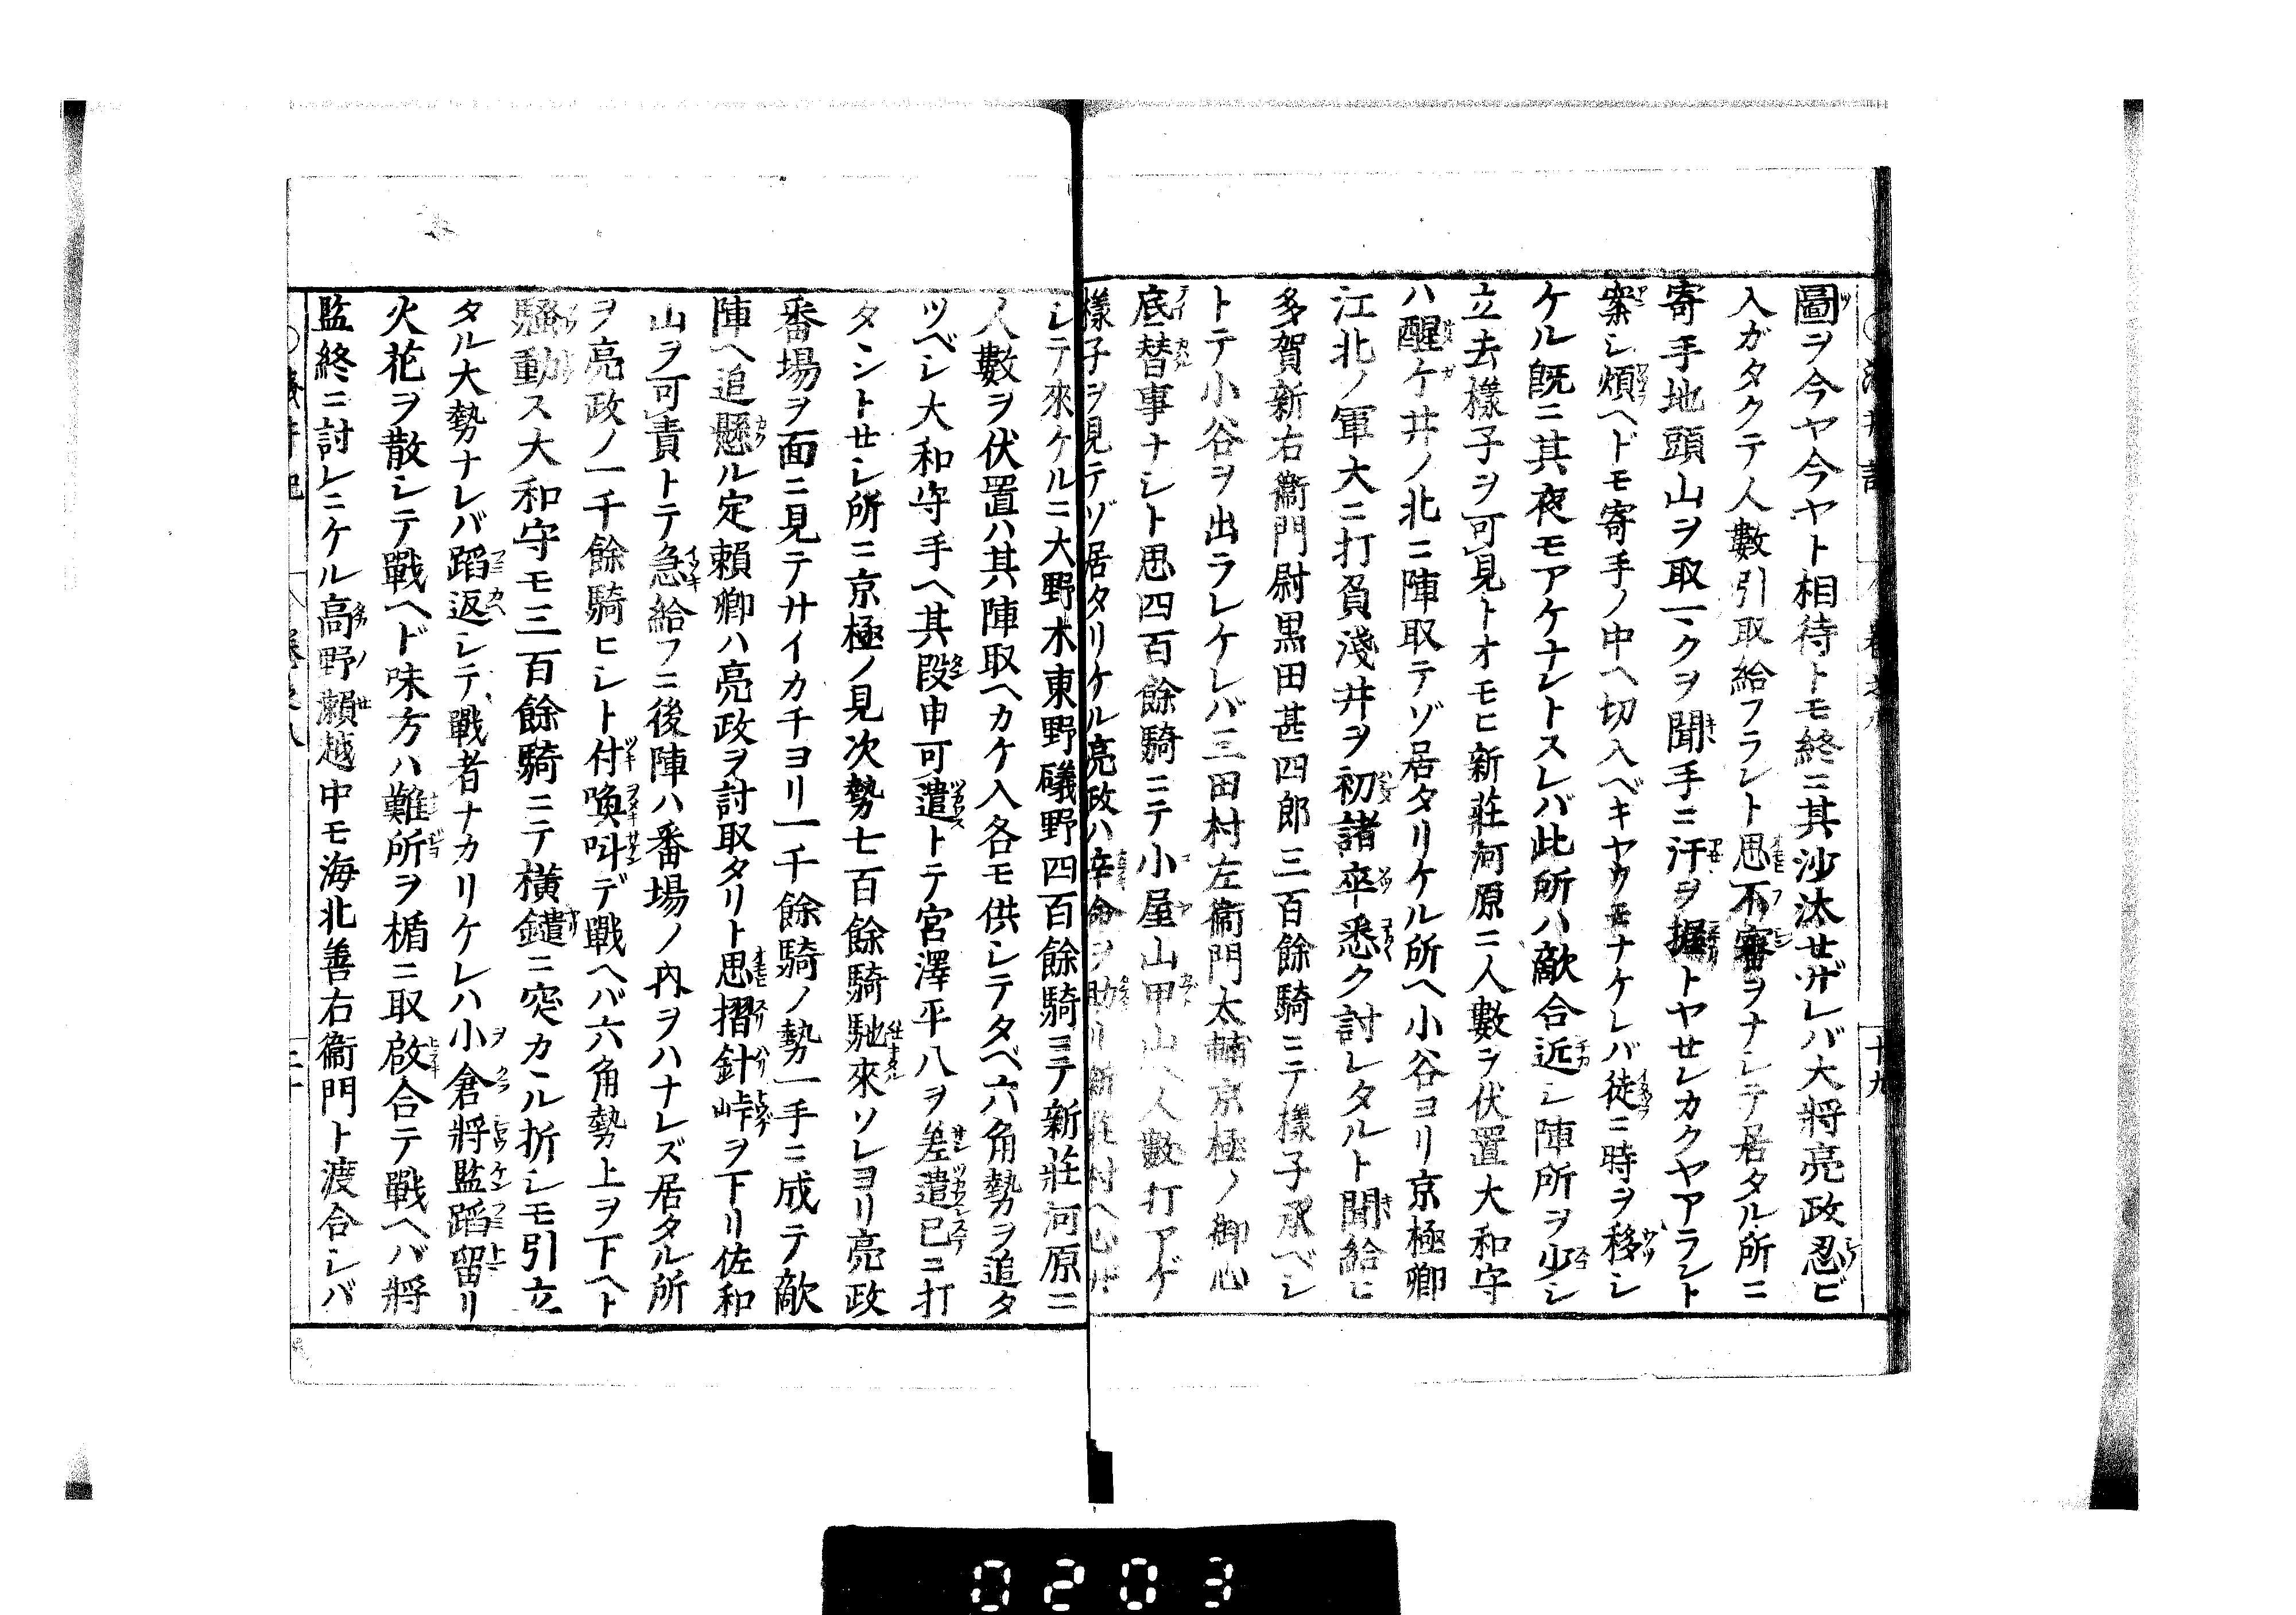 圖ヲ今ヤ今ヤト相待トモ終ニ其沙汰セザレバ大將亮政忍ビ
入ガタクテ人數引取給フラント思不審ヲナシテ居タル所ニ
寄手地頭山ヲ取一クヲ聞手ニ汗ヲ握トヤセンカクヤアラント
案シ煩ヘドモ寄手ノ中ヘ切入ベキヤウモナケレバ徒ニ時ヲ移シ
ケル既ニ其夜モアケナントスレバ此所ハ敵合近シ陣所ヲ少シ
立去樣子ヲ可見トオモヒ新莊河原ニ人數ヲ伏置大和守
ハ醒ケ井ノ北ニ陣取テゾ居タリケル所ヘ小谷ヨリ京極卿
江北ノ軍大ニ打負淺井ヲ初諸卒悉ク討レタルト聞給ヒ
多賀新右衞門尉黒田甚四郎三百餘騎ニテ樣子承ベシ
トテ小谷ヲ出ラレケレバ三田村左衞門太輔京極ノ御心
底替事ナシト思四百餘騎ニテ小屋山甲山ヘ人數打アゲ
樣子ヲ見テゾ居タリケル亮政ハ辛命ヲ助リ新莊村ヘ心ザ
シテ來ケルニ大野木東野礒野四百餘騎ニテ新莊河原ニ
人數ヲ伏置ハ其陣取ヘカケ入各モ供シテタベ六角勢ヲ追タ
ツベシ大和守手ヘ其段申可遣トテ宮澤平八ヲ差遣已ニ打
タントセシ所ニ京極ノ見次勢七百餘騎馳來ソレヨリ亮政
番場ヲ面ニ見テサイカチヨリ一千餘騎ノ勢一手ニ成テ敵
陣ヘ追懸ル定頼卿ハ亮政ヲ討取タリト思摺針峠ヲ下リ佐和
山ヲ可責トテ急給フニ後陣ハ番場ノ内ヲハナレズ居タル所
ヲ亮政ノ一千餘騎ヒシト付喚叫デ戰ヘバ六角勢上ヲ下ヘト
騷動ス大和守モ三百餘騎ニテ横鑓ニ突カヽル折シモ引立
タル大勢ナレバ蹈返シテ戰者ナカリケレハ小倉將監蹈留リ
火花ヲ散シテ戰ヘド味方ハ難所ヲ楯ニ取啟合テ戰ヘバ將
監終ニ討レニケル高野瀬越中モ海北善右衞門ト渡合シバ
0203